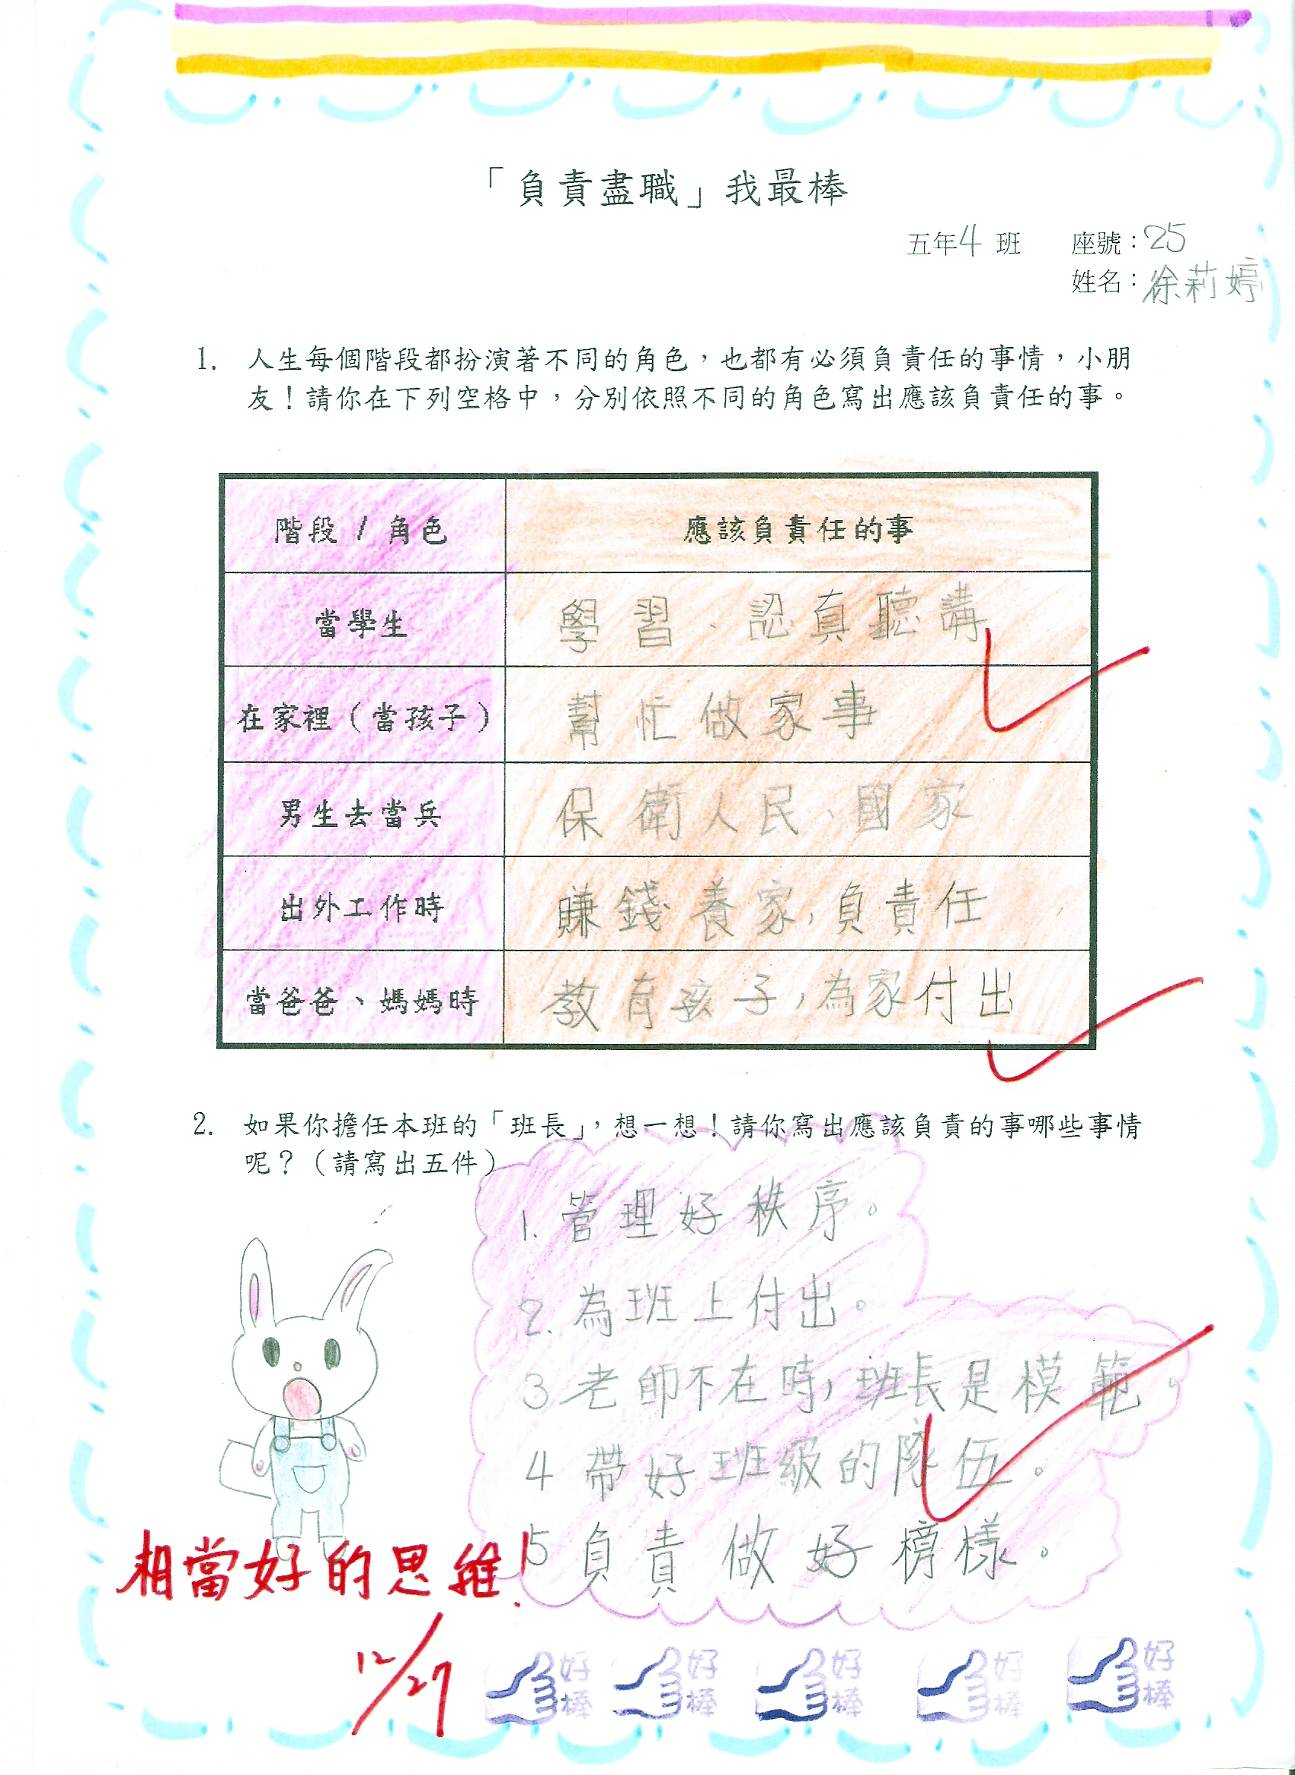 「負責盡職」我最棒
五年4班 座號：25
姓名：徐莉婷
1. 人生每個階段都扮演著不同的角色，也都有必須負責任的事情，小朋
友！請你在下列空格中，分別依照不同的角色寫出應該負責任的事。
階段 / 角色 應該負責任的事
當學生 學習、認真聽講
在家裡（當孩子） 幫忙做家事
男生去當兵 保衛人民、國家
出外工作時 賺錢養家，負責任
當爸爸、媽媽時 教育孩子，為家付出
2. 如果你擔任本班的「班長」，想一想！請你寫出應該負責的事哪些事情
呢？（請寫出五件）
1. 管理好秩序。
2. 為班上付出。
3 老師不在時，班長是模範。
4 帶好班級的隊伍。
5 負責做好榜樣。
相當好的思維！
12/27
好棒 好棒 好棒 好棒 好棒